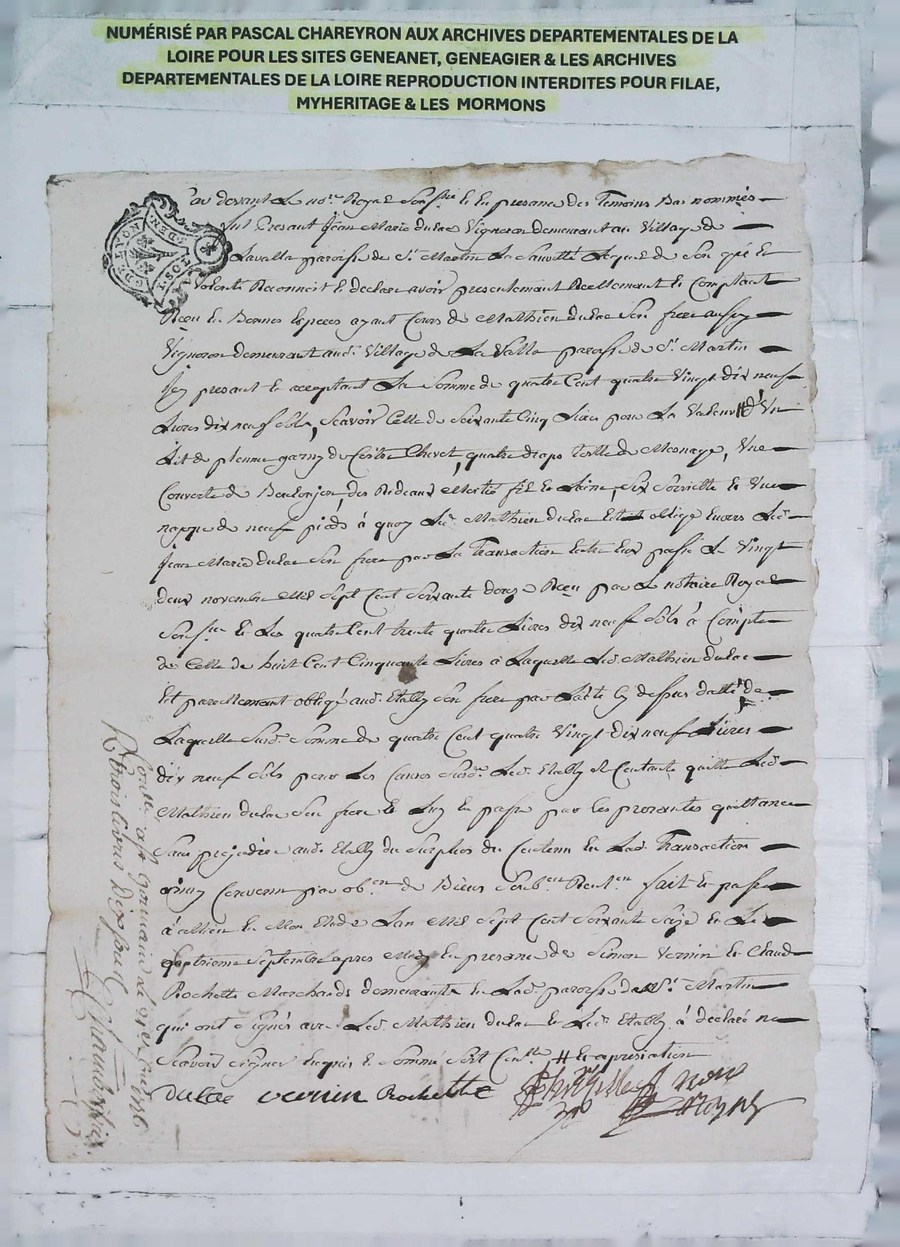 NUMÉRISÉ PAR PASCAL CHAREYRON AUX ARCHIVES DEPARTEMENTALES DE LA
LOIRE POUR LES SITES GENEANET, GENEAGIER & LES ARCHIVES
DEPARTEMENTALES DE LA LOIRE REPRODUCTION INTERDITES POUR FILAE,
MYHERITAGE & LES MORMONS
Par devant Le no.re Royal Sous.né Et En presance des Temoins Bas nommés
fut Presant Jean Marie dulac Vigneron demeurant au Village de
Lavalla paroisse de S.t Martin La Sauvetté Lequel de Son gré Et
Volonté Reconnoit Et declare avoir presentemant Reellemant Et Comptant
Reçu En Bonnes Especes ayant Cours de Mathieu dulac Son frere aussy
Vigneron demeurant aud. Village de La Valla paroisse de S.t Martin
Icy presant Et acceptant La Somme de quatre Cent quatre Vingt dix neuf
Livres dix neuf Sols, Scavoir Celle de Soixante Cinq Livres pour La Valeur # d'Un
Lit de plume garny de Chevet, quatre draps Toille de Menage, Une
Couverte de des Rideaux Moitié fil Et Laine, Six Serviette Et Une
nappe de neuf pieds à quoy Led. Mathieu dulac Etoit obligé Envers Led.
Jean Marie dulac Son frere par La Transaction Entre Eux passé Le Vingt
deux novembre Mil Sept Cent Soixante donze Reçu par Le notaire Royal
Sous.né Et Les quatre Cent trente quatre Livres dix neuf Sols à Compte
de Celle de huit Cent Cinquante Livres à Laquelle Led. Mathieu dulac
Est pareillemant obligé aud. Etably Son frere par L'acte Cy dessus datté de
Laquelle Susd. Somme de quatre Cent quatre Vingt dix neuf Livres
dix neuf Sols pour Les Causes Susd. Led. Etably Se Contante quitte Led.
Mathieu dulac Son frere Et Luy En passe par Les presantes quittance
Sans prejudice aud. Etably du Surplus du Contenu En Lad. Transaction
ainsy Convenu par ob.on de Biens Soub.on Ren.on fait Et passé
à Allieu En Mon Etude Lan Mil Sept Cent Soixante Seize Et Le
Septieme Septembre apres Midy En presance de Simon Vernin Et Claude
Rochette Marchands demeurants En Lad. paroisse de S.t Martin
qui ont Signés avec Led. Mathieu dulac Et Led. Etably à declaré ne
Scavoir Signer Enquis Et Sommé # Et apresiation
Dulac vernin Rochette no.re Royal
Con.llé à S.t Germain Laval 1776
R. trois livres dix Sous